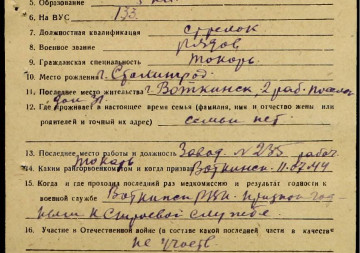 5. Образование
6. На ВУС 133
7. Должностная квалификация стрелок
8. Военное звание рядов
9. Гражданская специальность токарь
10. Место рождения г. Сталинград
11. Последнее место жительства г. Воткинск, 2 раб. поселок
дом 91
12. Где проживает в настоящее время семья (фамилия, имя и отчество жены или
родителей и точный их адрес) семьи нет
13. Последнее место работы и должность Завод № 235 рабоч.
токарь
14. Каким райгорвоенкоматом и когда призван Воткинск. 11.07.44
15. Когда и где проходил последний раз медкомиссию и результат годности к
военной службе Воткинск РВК. признан год
ным к строевой службе.
16. Участие в Отечественной войне (в составе какой последней части в качестве
не участв